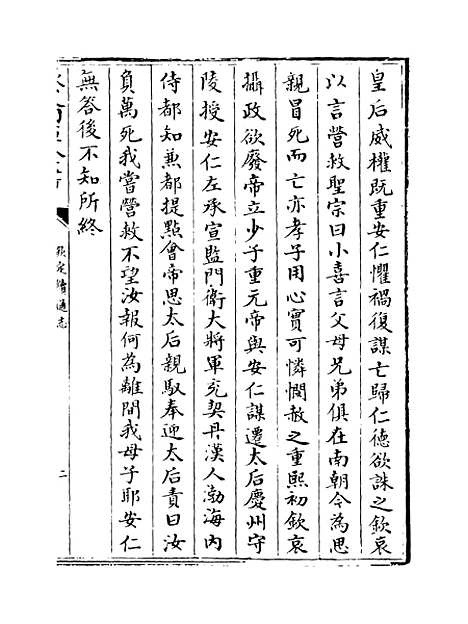 皇后威權既重安仁懼禍復謀亡歸仁德欲誅之欽哀
以言營救聖宗曰小喜言父母兄弟俱在南朝今為思
親冒死而亡亦孝子用心實可憐憫赦之重熙初欽哀
攝政欲廢帝立少子重元帝與安仁謀遷太后慶州守
陵授安仁左承宣監門衛大將軍充契丹漢人渤海内
侍都知兼都提點會帝思太后親馭奉迎太后責曰汝
負萬死我嘗營救不望汝報何為離間我母子耶安仁
無答後不知所終
欽定續通志
二